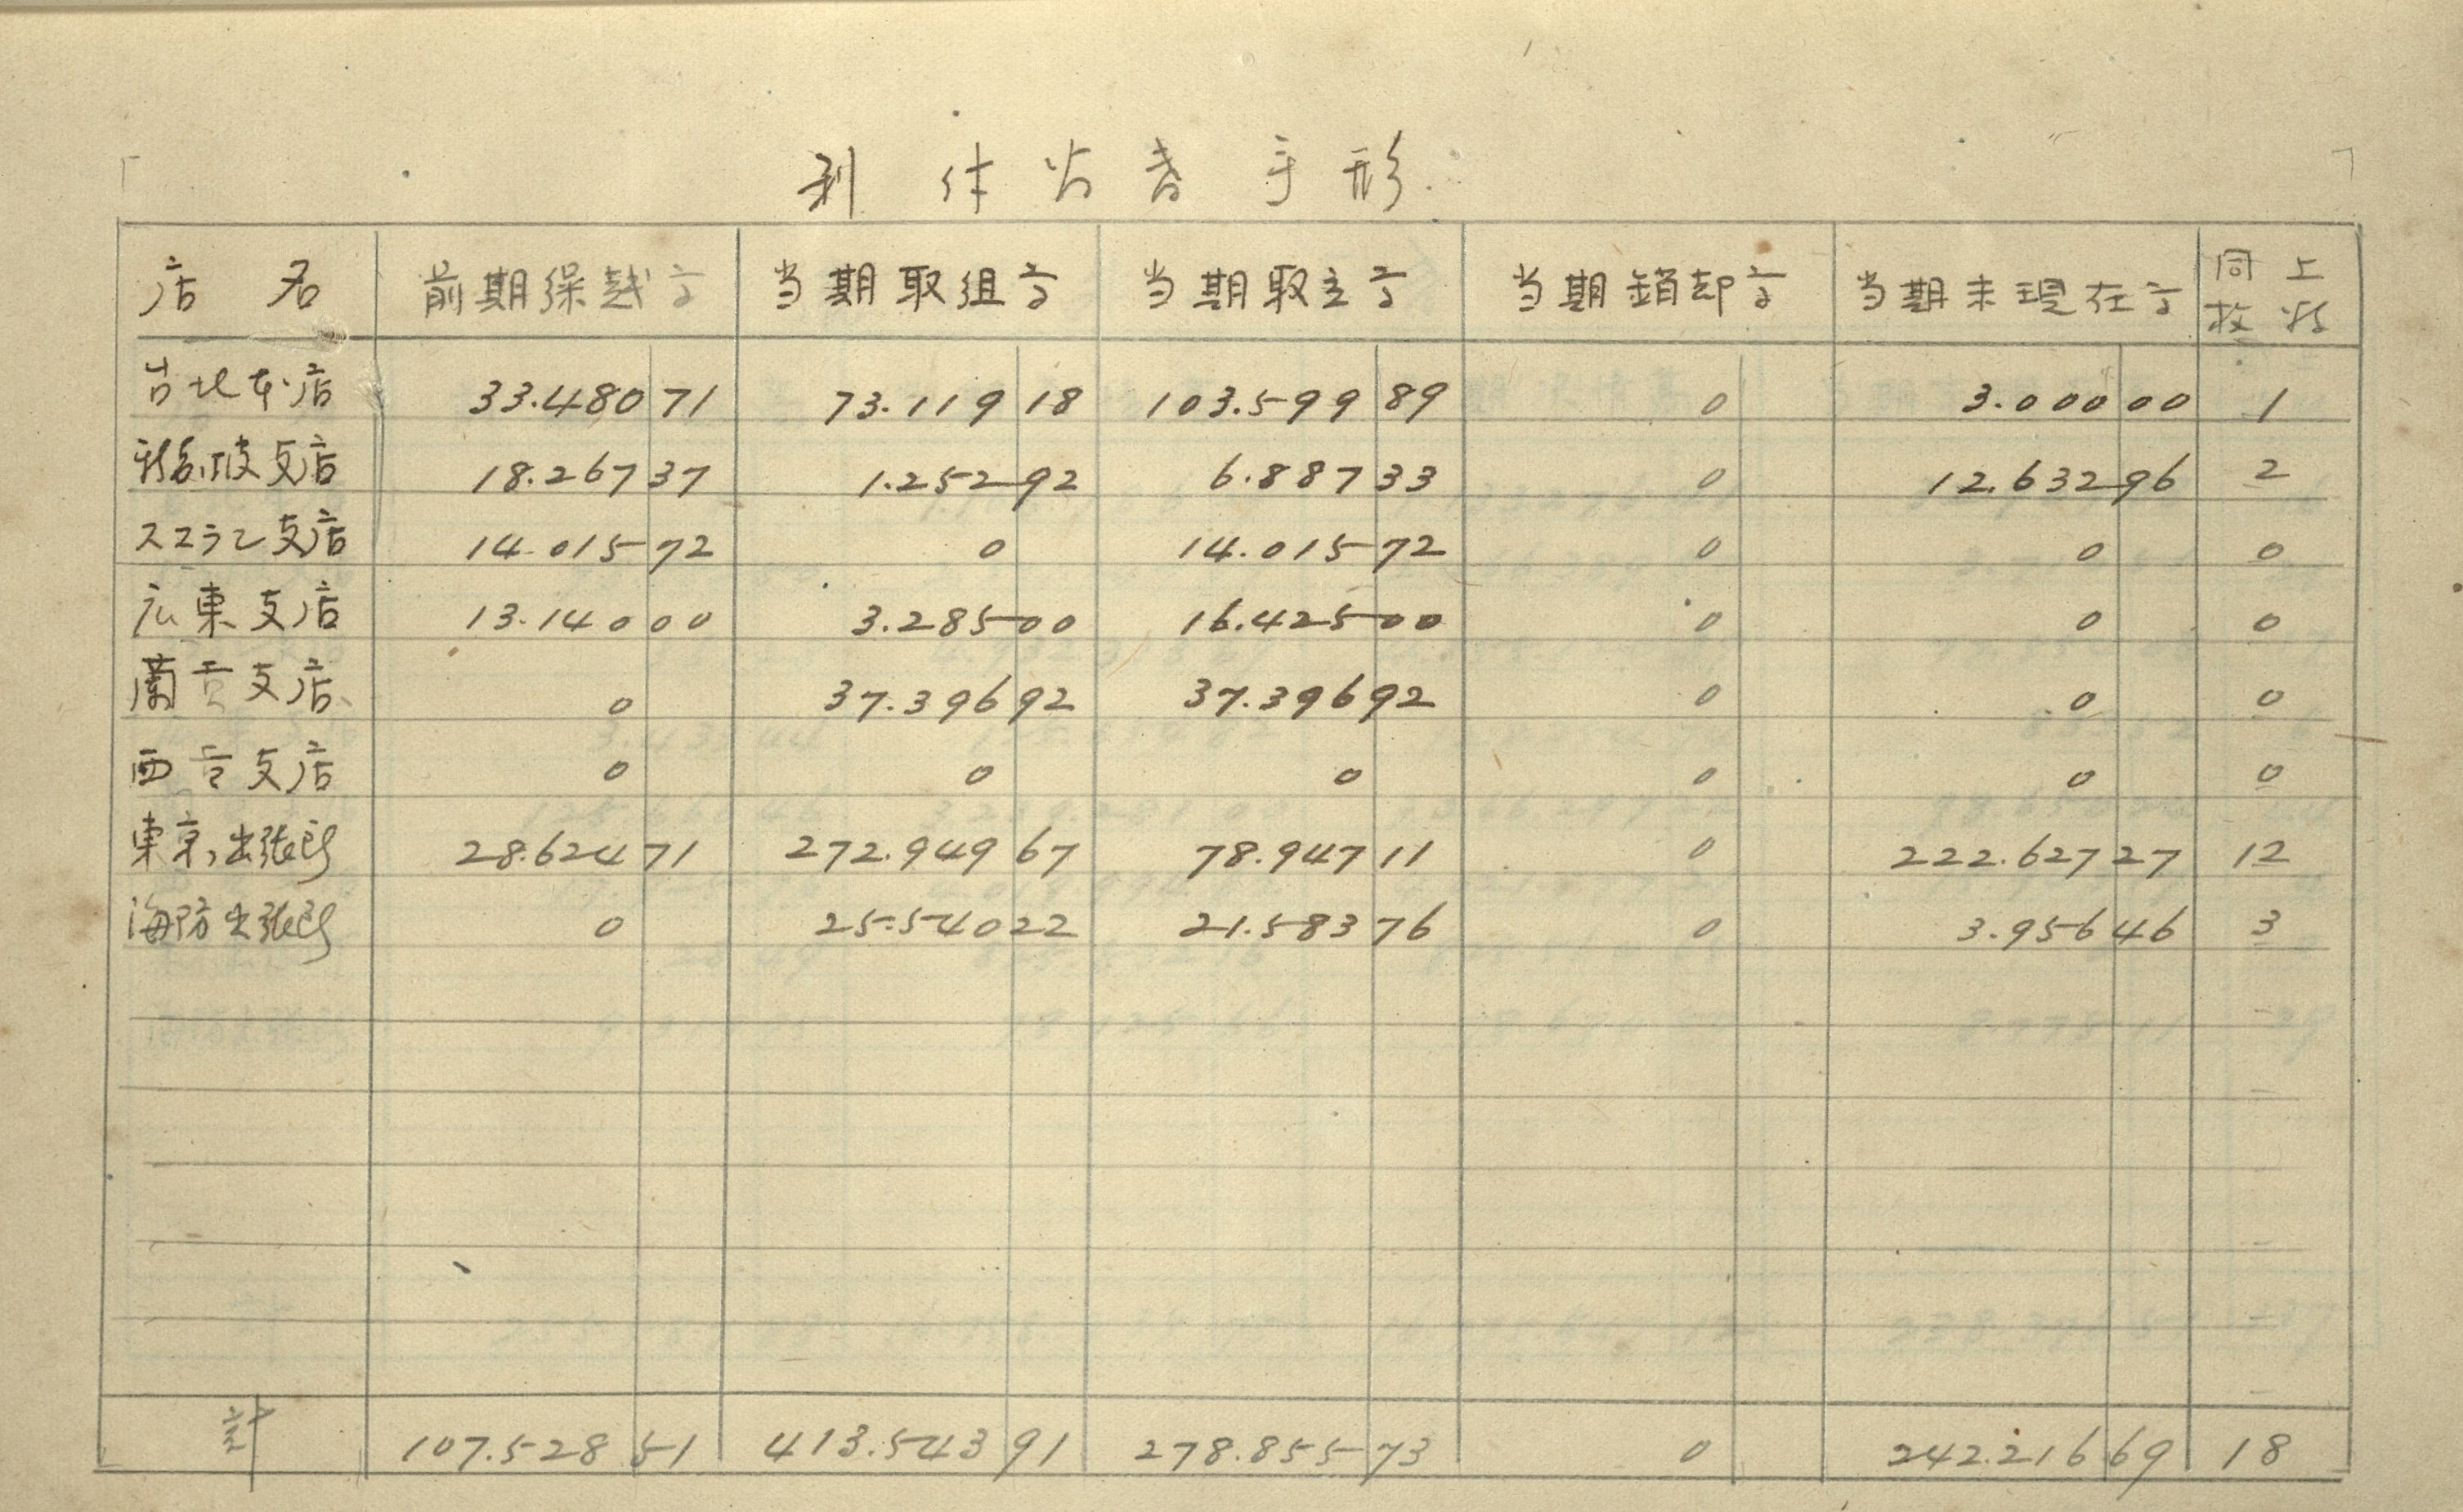 利付為替手形
店名 前期繰越高 当期取組高 当期取立高 当期銷却高 当期末現在高 同上枚数
台北本店 33.480 71 73.119 18 103.599 89 0 3.000 00 1
新嘉坡支店 18.267 37 1.252 92 6.887 33 0 12.632 96 2
スマラン支店 14.015 72 0 14.015 72 0 0 0
広東支店 13.140 00 3.285 00 16.425 00 0 0 0
蘭貢支店 0 37.396 92 37.396 92 0 0 0
西貢支店 0 0 0 0 0 0
東京出張所 28.624 71 272.949 67 78.947 11 0 222.627 27 12
海防出張所 0 25.540 22 21.583 76 0 3.956 46 3
計 107.528 51 413.543 91 278.855 73 0 242.216 69 18